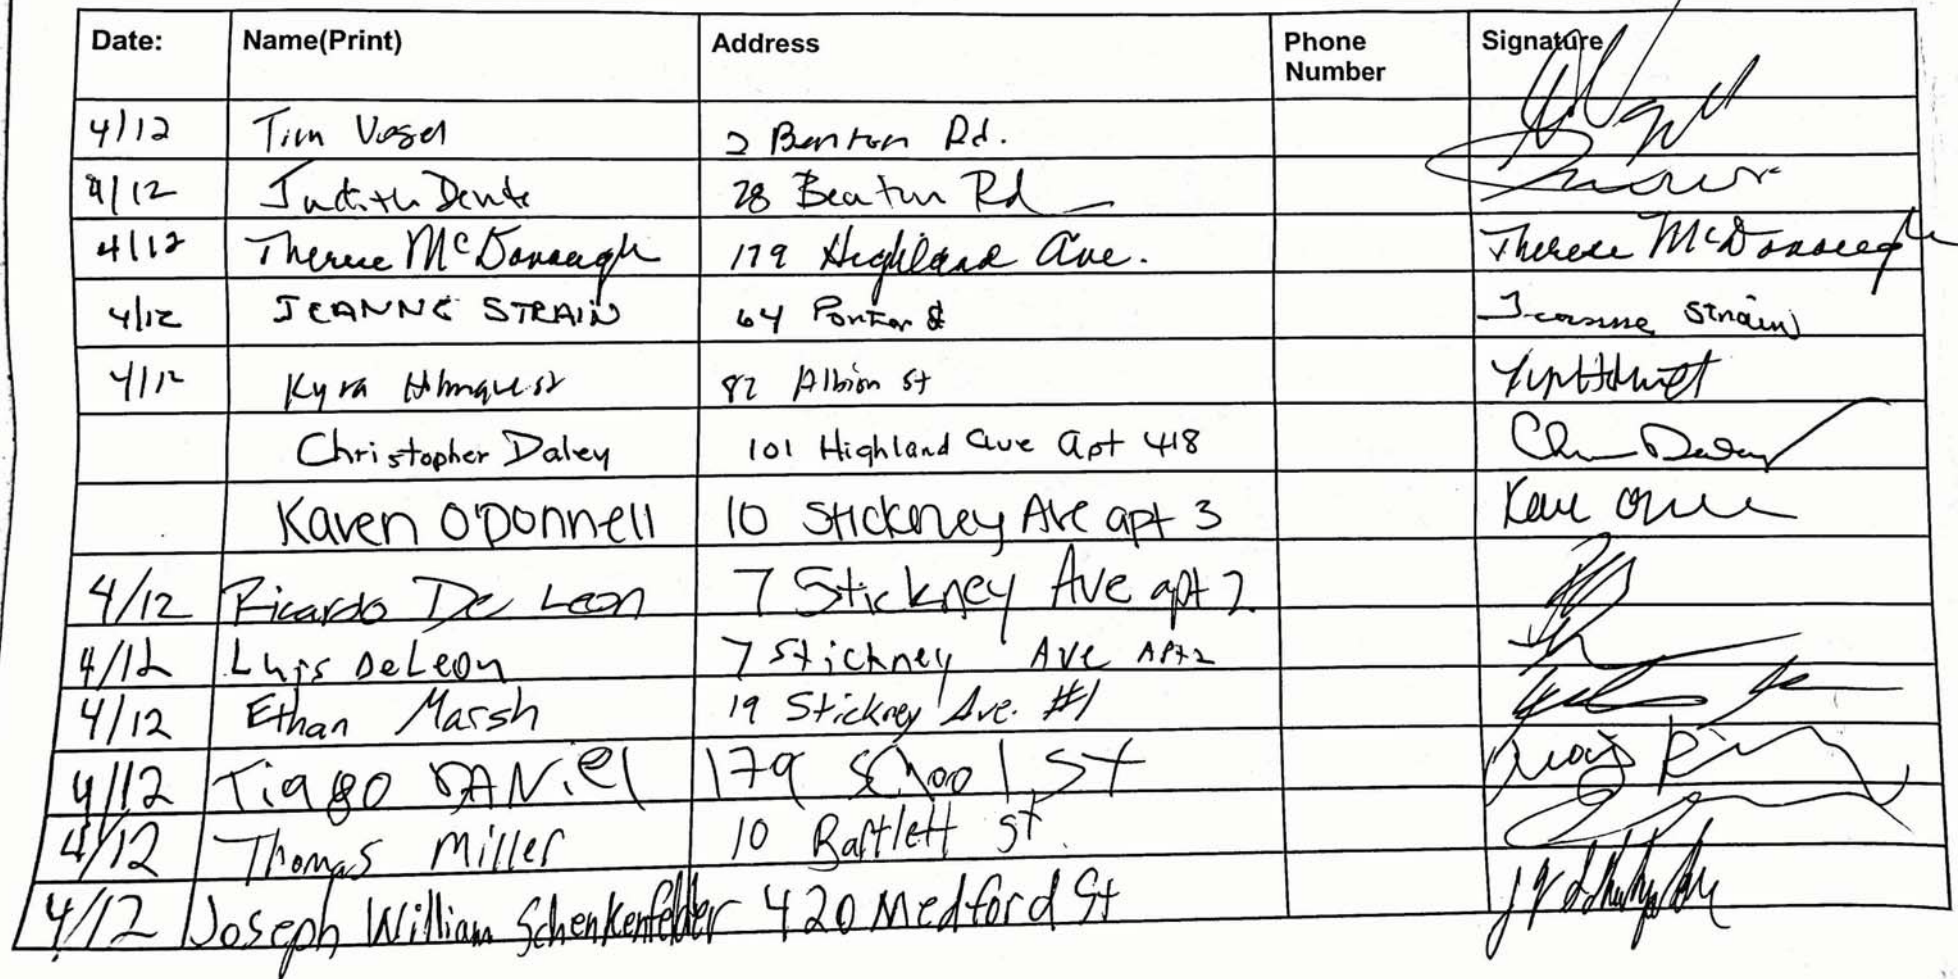 Date: Name(Print) Address Phone Number Signature
4/12 Tim Vogel 2 Benton Rd.
4/12 Judith Dente 28 Beaton Rd
4/12 Therese McDonough 179 Highland Ave. Therese McDonough
4/12 JEANNE STRAIN 64 Porter St Jeanne Strain
4/12 Kyra Holmquist 82 Albion St
Christopher Daley 101 Highland Ave Apt 418 Chris Daley
Karen O'Donnell 10 Stickney Ave apt 3
4/12 Ricardo De Leon 7 Stickney Ave apt 2
4/12 Luis DeLeon 7 Stickney Ave APT 2
4/12 Ethan Marsh 19 Stickney Ave. #1
4/12 Tiago DANiel 179 School St
4/12 Thomas Miller 10 Bartlett St.
4/12 Joseph William Schenkenfelder 420 Medford St